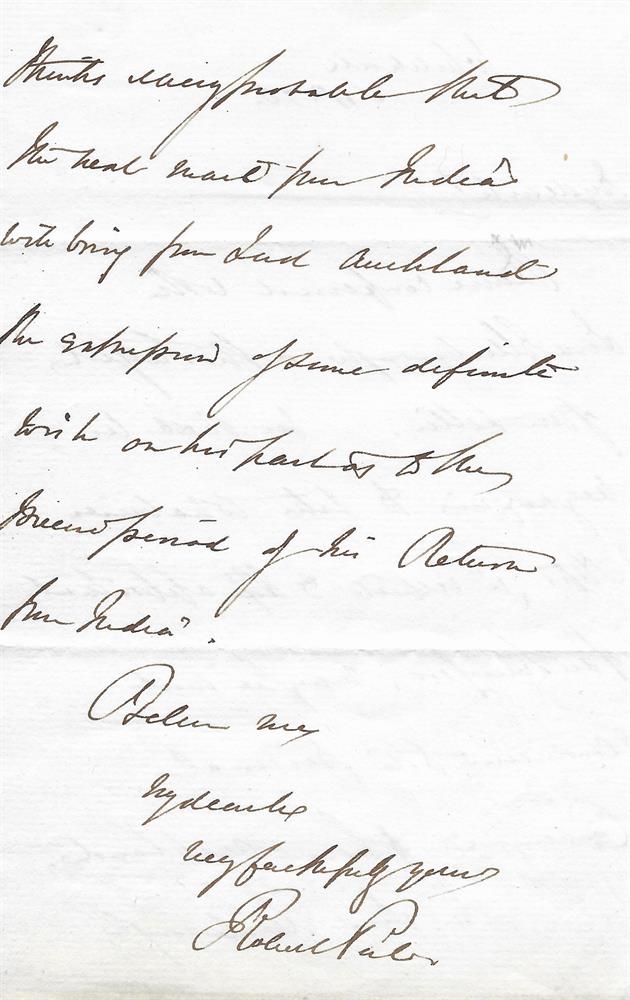 thinks very probable that
the next mail from India
will bring from Lord Auckland
the expression of some definite
wish on his part as to the
precise period of his Return
from India.
Believe me
My dear Sir
very faithfully yours
Robert Peel